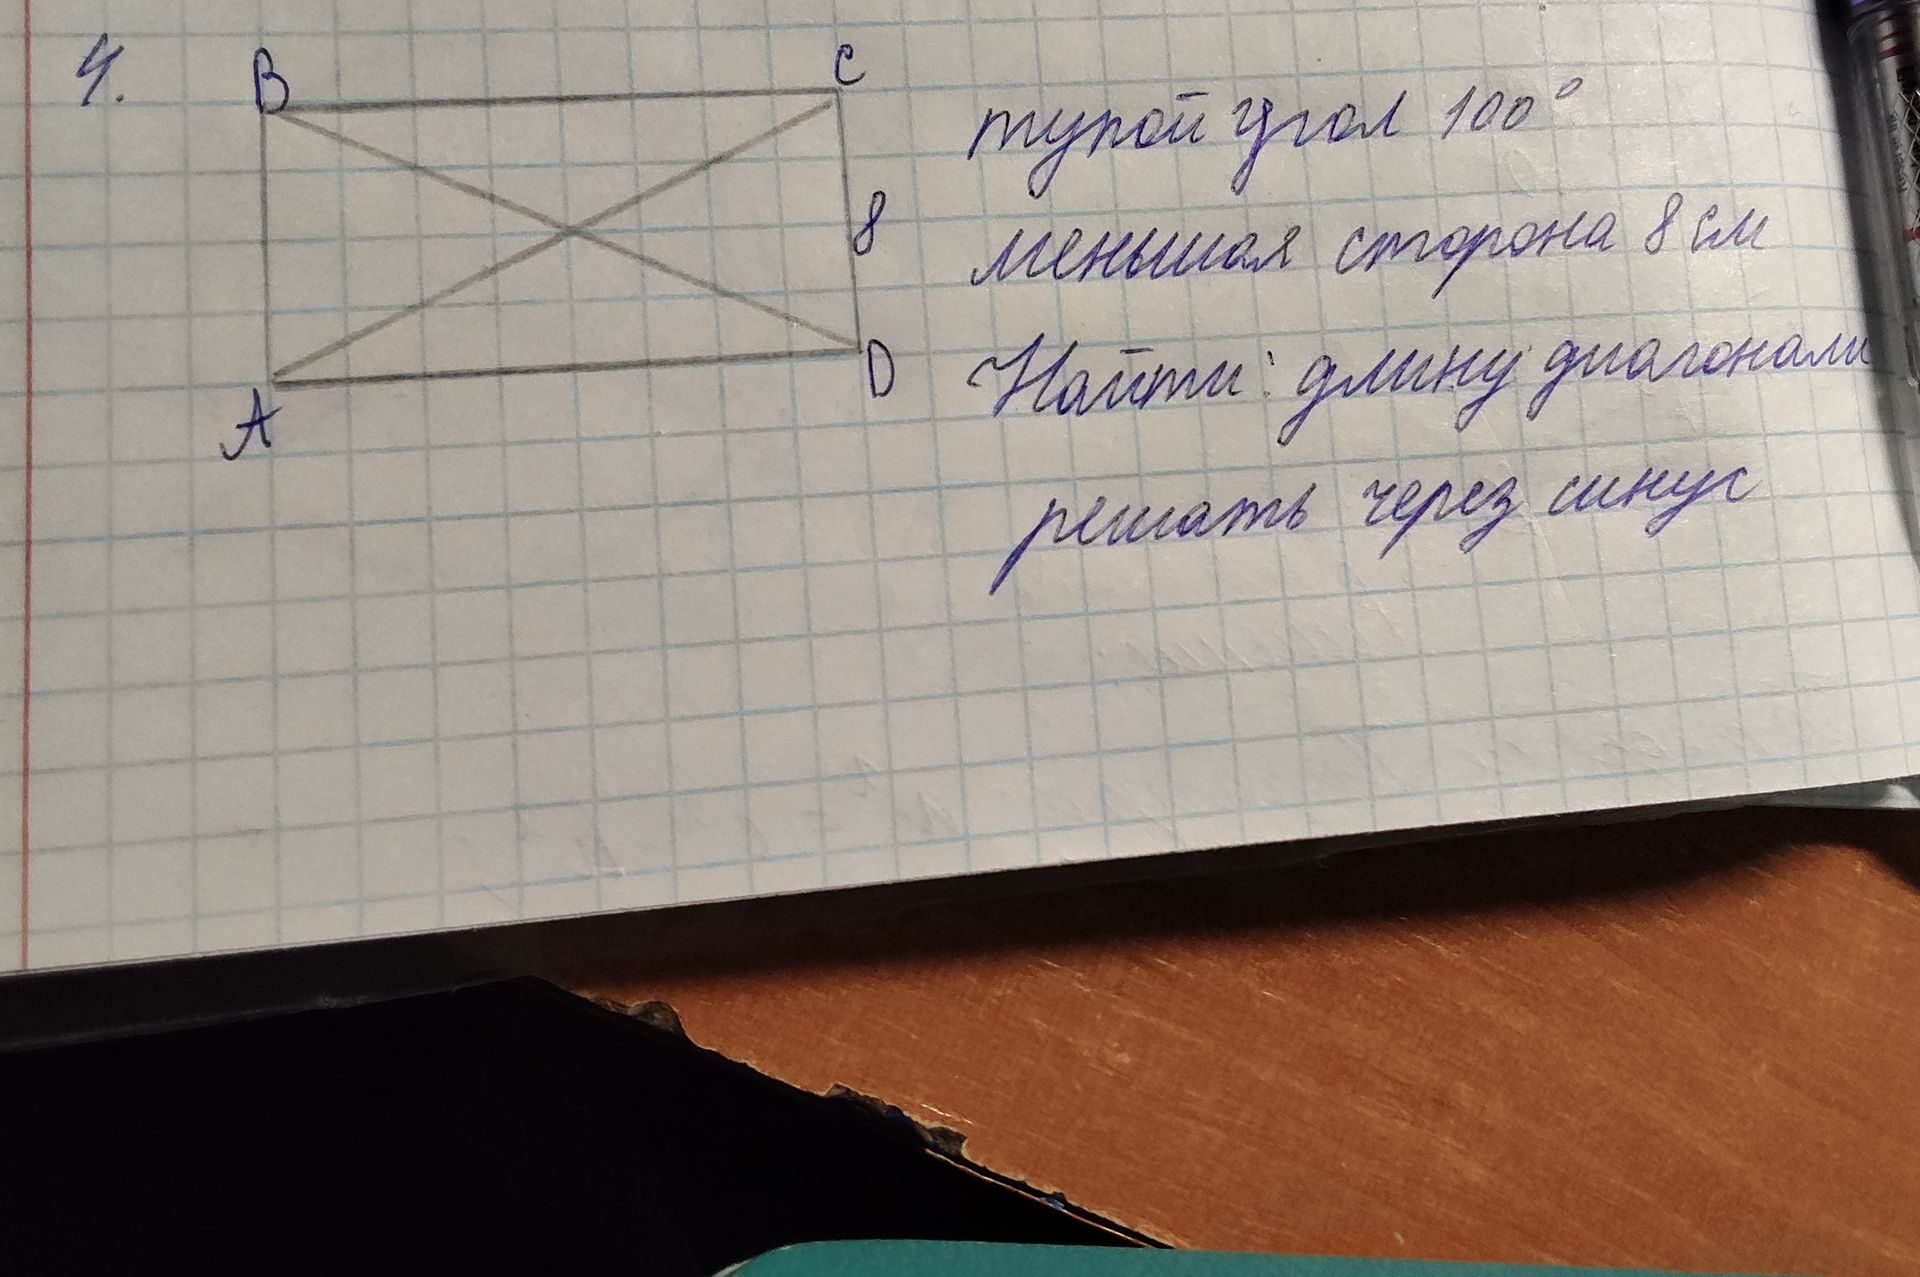 4.
B
C
8
A
D
тупой угол 100°
меньшая сторона 8 см
Найти: длину диагонали
решать через синус